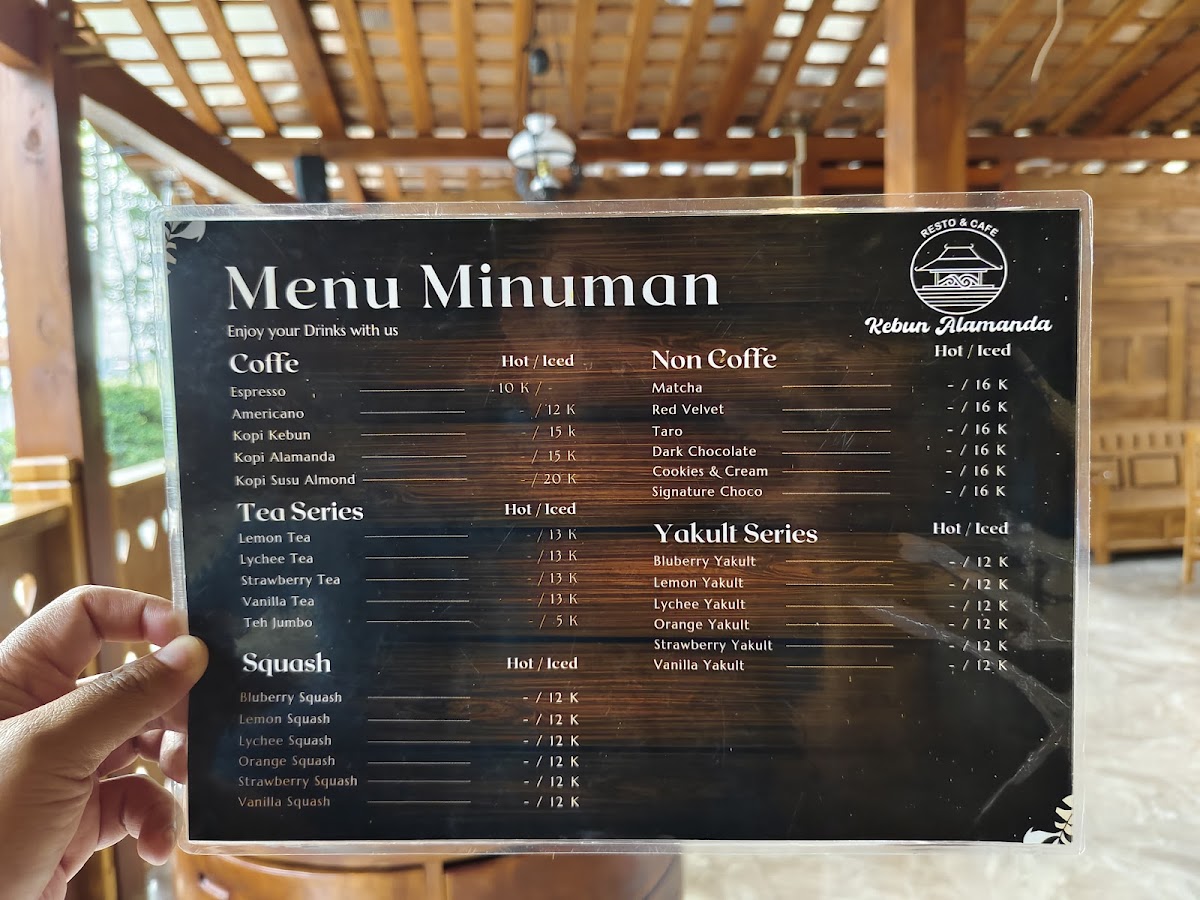 RESTO & CAFE
Kebun Alamanda
Menu Minuman
Enjoy your Drinks with us
Coffe Hot / Iced
Espresso 10 K / -
Americano - / 12 K
Kopi Kebun - / 15 k
Kopi Alamanda - / 15 K
Kopi Susu Almond - / 20 K
Tea Series Hot / Iced
Lemon Tea - / 13 K
Lychee Tea - / 13 K
Strawberry Tea - / 13 K
Vanilla Tea - / 13 K
Teh Jumbo - / 5 K
Squash Hot / Iced
Bluberry Squash - / 12 K
Lemon Squash - / 12 K
Lychee Squash - / 12 K
Orange Squash - / 12 K
Strawberry Squash - / 12 K
Vanilla Squash - / 12 K
Non Coffe Hot / Iced
Matcha - / 16 K
Red Velvet - / 16 K
Taro - / 16 K
Dark Chocolate - / 16 K
Cookies & Cream - / 16 K
Signature Choco - / 16 K
Yakult Series Hot / Iced
Bluberry Yakult - / 12 K
Lemon Yakult - / 12 K
Lychee Yakult - / 12 K
Orange Yakult - / 12 K
Strawberry Yakult - / 12 K
Vanilla Yakult - / 12 K